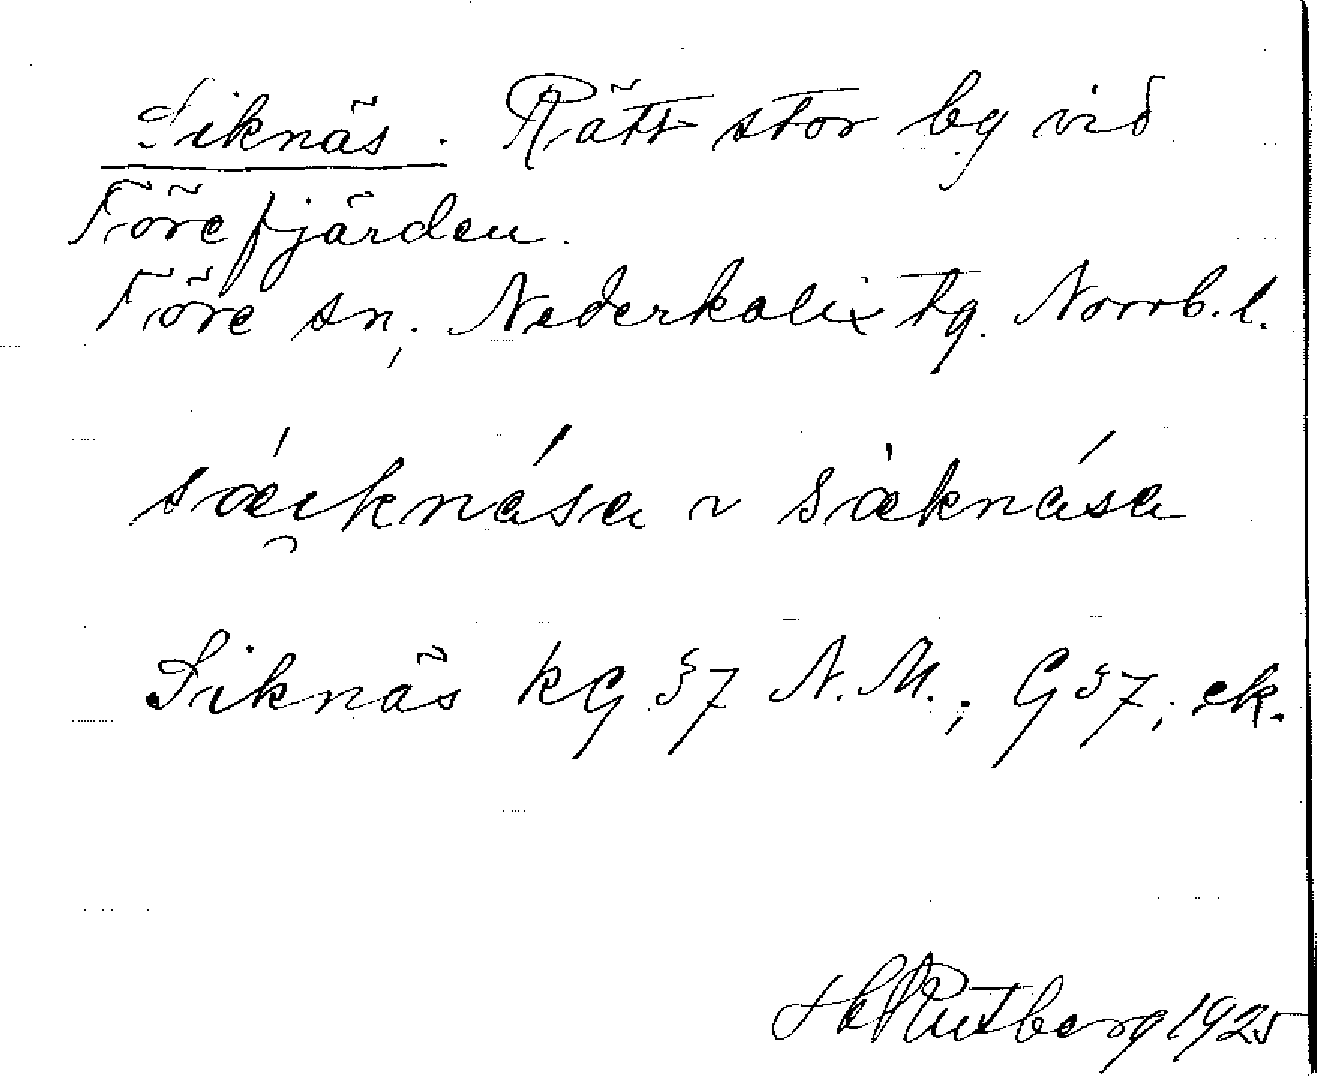 Siknäs. Rätt stor by vid
Törefjärden.
Töre sn, Nederkalix tg. Norrb. l.
sæi̯knása ~ sæ̀knása
Siknäs kG 37 N.M.; G 37; ek.
H Rutberg 1925